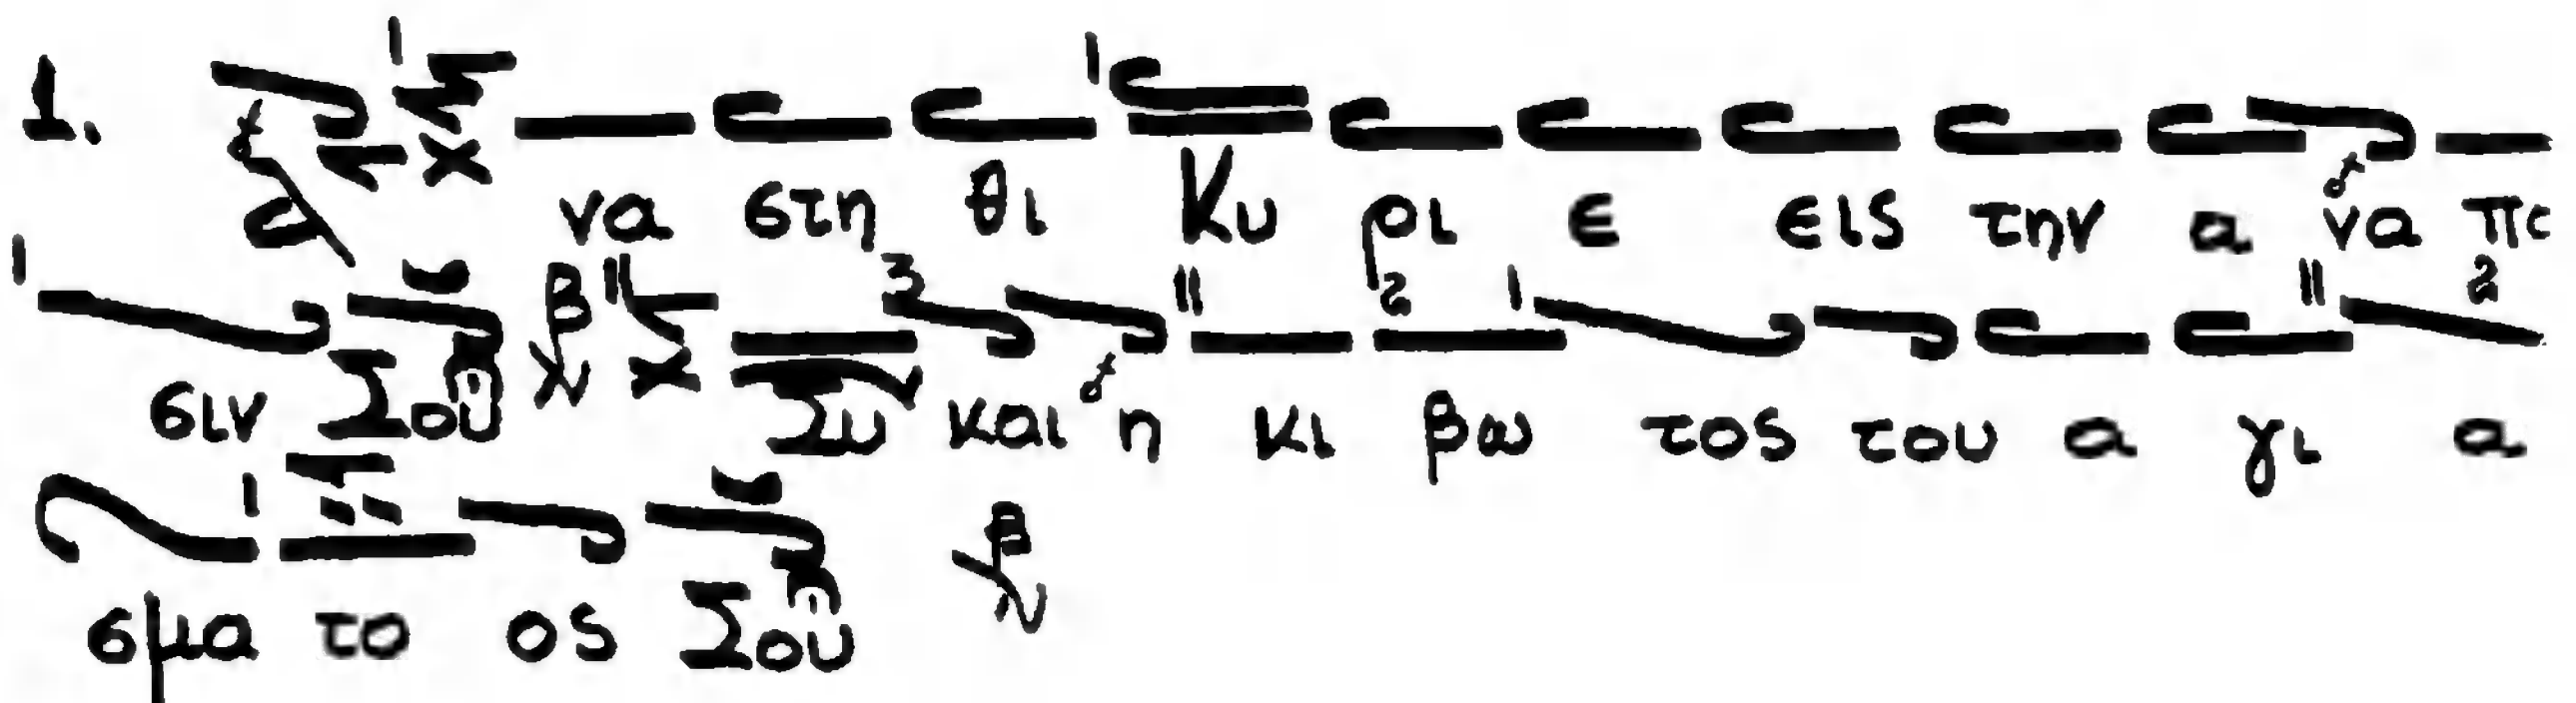 1. α να στη θι Κυ ρι ε εις την α να πε
σιν Σου β Συ και η κι βω τος του α γι α
σμα το ος Σου β